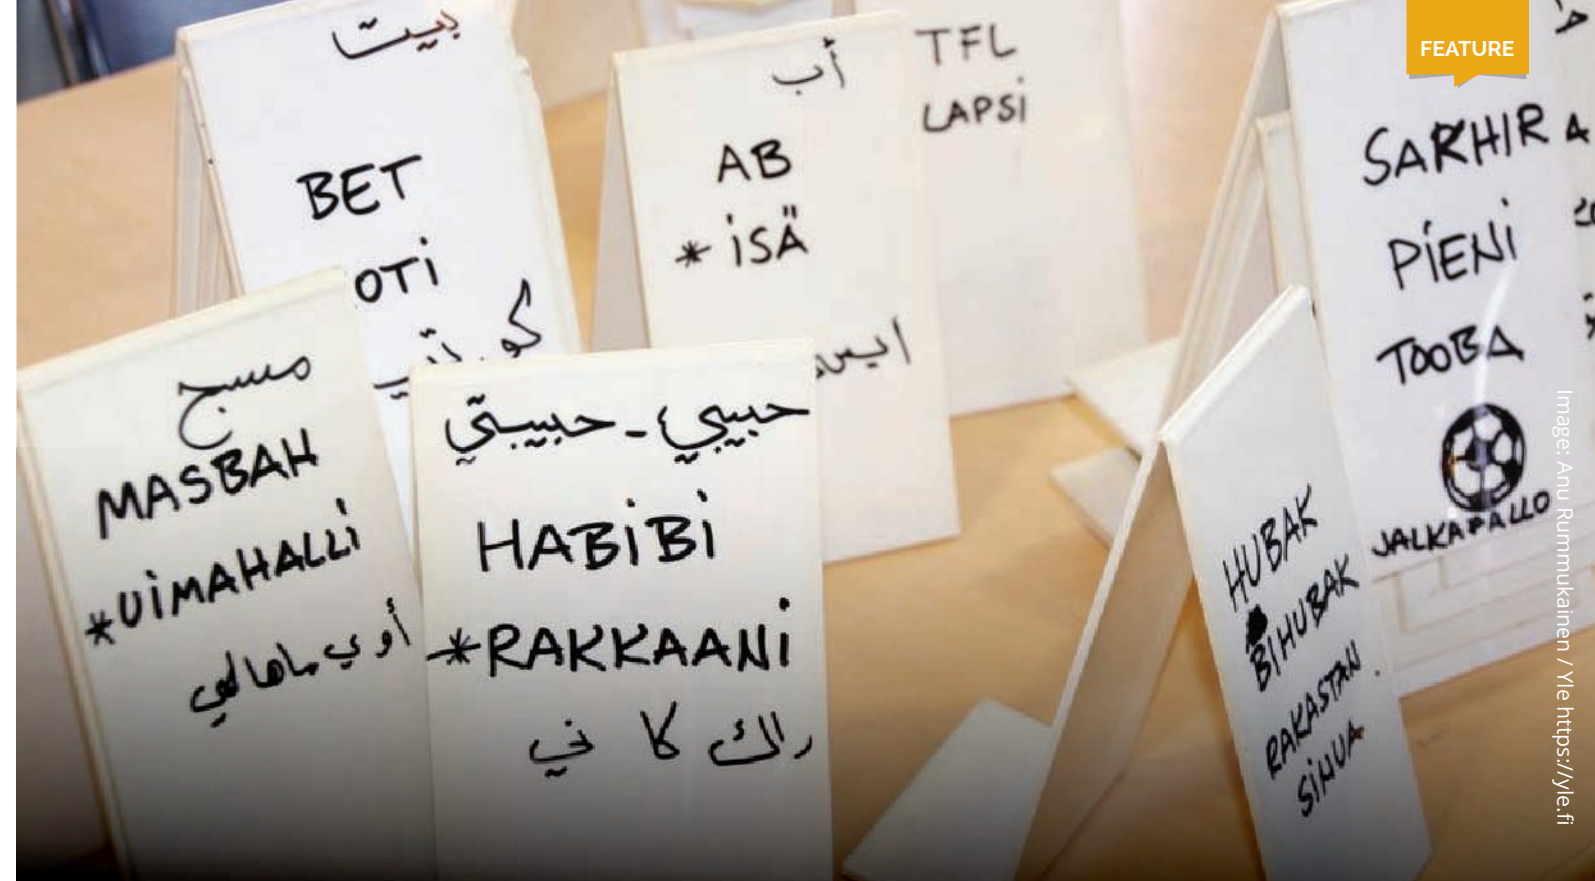 FEATURE
بيت
BET
OTI
كوتي
أب
AB
*ISÄ
TFL
LAPSI
SARHIR
PIENI
TOOBA
JALKAPALLO
مسبح
MASBAH
*UIMAHALLI
أوي ماهالي
حبيبي - حبيبتي
HABIBI
*RAKKAANI
راك كا ني
HUBAK
BIHUBAK
RAKASTAN
SINUA
Image: Anu Rummukainen / Yle https://yle.fi